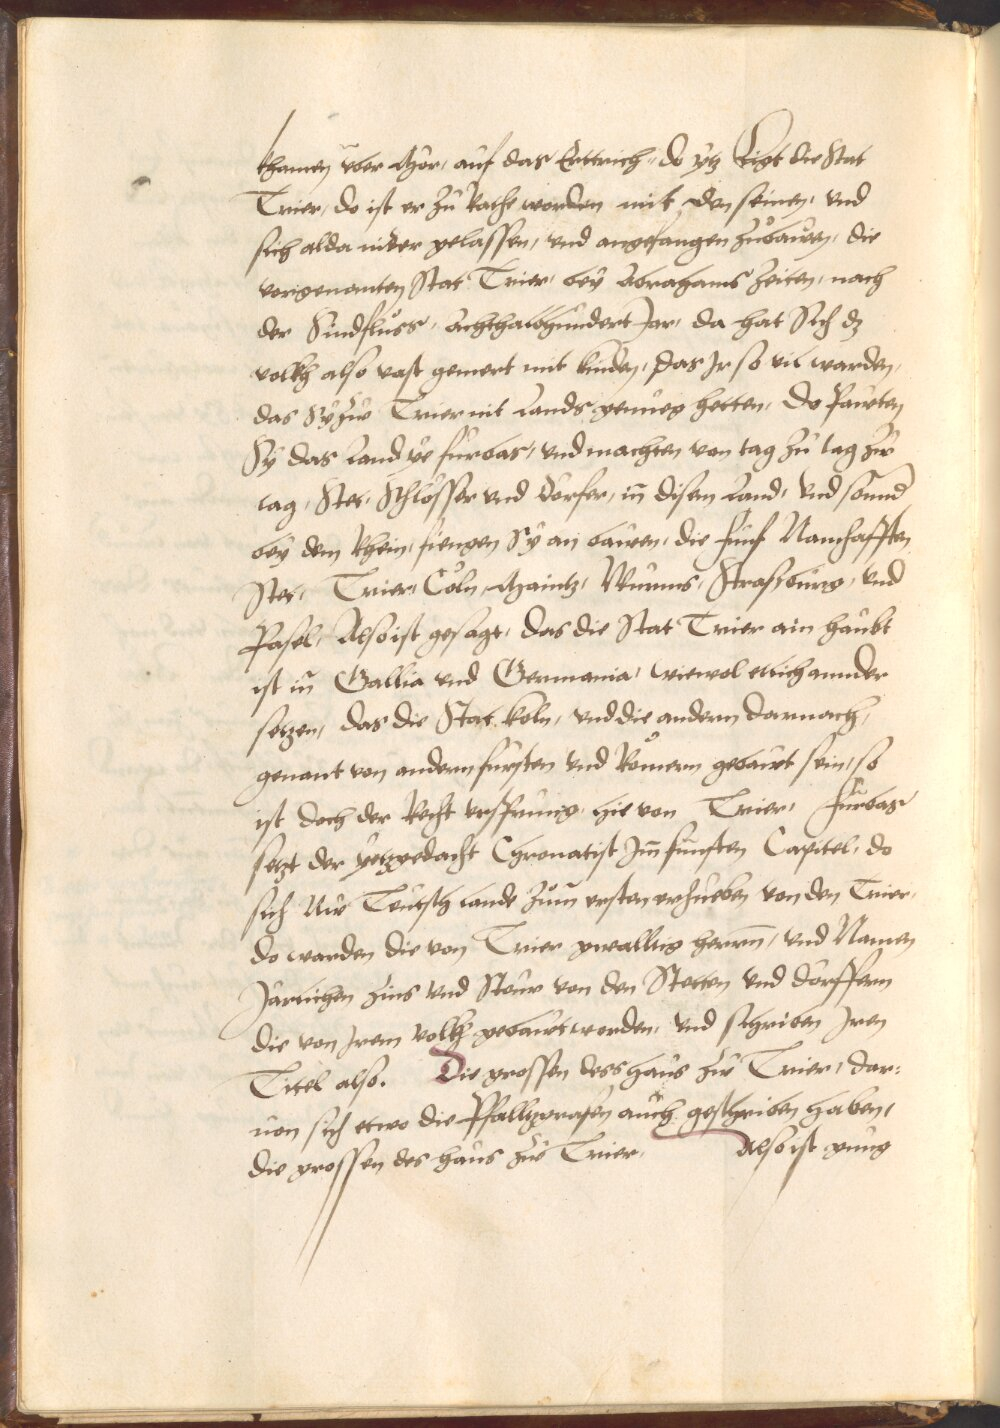 khamen vber Mör, auf das Erttrich, do ytz Ligt die Stat
Trier, do ist er zu Rathe worden mit den seinen, vnd
sich alda nider gelassen, vnd angefangen zubawen, die
vorgenanten Stat Trier, bey Abrahams Zeiten, nach
der Sindfluss, Achthalbhundert Jar, da hat Sich dz
volkh also vast gemert mit kinden, das Jr so vil warden,
das Sy zu Trier nit Lands genueg hetten, do Pauten
Sy das Land ye furbas, vnd machten von tag zu tag zu
tag, Stet, Schlösser vnd dörfer, in disem Land, vnd sonnd
bey dem Rhein, fiengen Sy an bawen, die funf Namhafften
Stet, Trier, Cöln, Maintz, Wurms, Strassburg, vnd
Pasel, Also ist gesagt, das die Stat Trier ain haubt
ist in Gallia vnd Germania, wiewol ettich annder
setzen, das die Stat Koln, vnd die andern darnach,
genant von andern fursten vnd Römern gebawt sein, so
ist doch der Recht vrsprung, hie von Trier, Furbas
setzt der yetzgedacht Chronatist Jm funften Capitel, do
sich Nun Teutsch Lande zum ersten erhueben von den Trier,
do warden die von Trier gwalltig herrn, vnd Namen
Järlichen zins vnd Steur von den Stetten vnd dörffern
die von Jrem volkh gebawt worden, vnd schriben Jren
Titel also. Die grossen dess haus zu Trier, dar:
uon sich etwo die Pfalltzgrafen auch geschriben haben,
die grossen des haus zu Trier, Also ist gnug